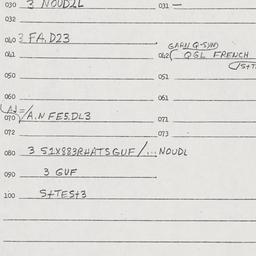 030 3 NOUD2L 031 —
032
040 3 FA.D23
GARN Q-SYM
041 042 QGL FRENCH
050 051
060 061
070 /A.N FES.DL3 071
072 073
080 3 51X883RHATSGUF/... NOUDL
090 3 GUF
100 S+TES+3